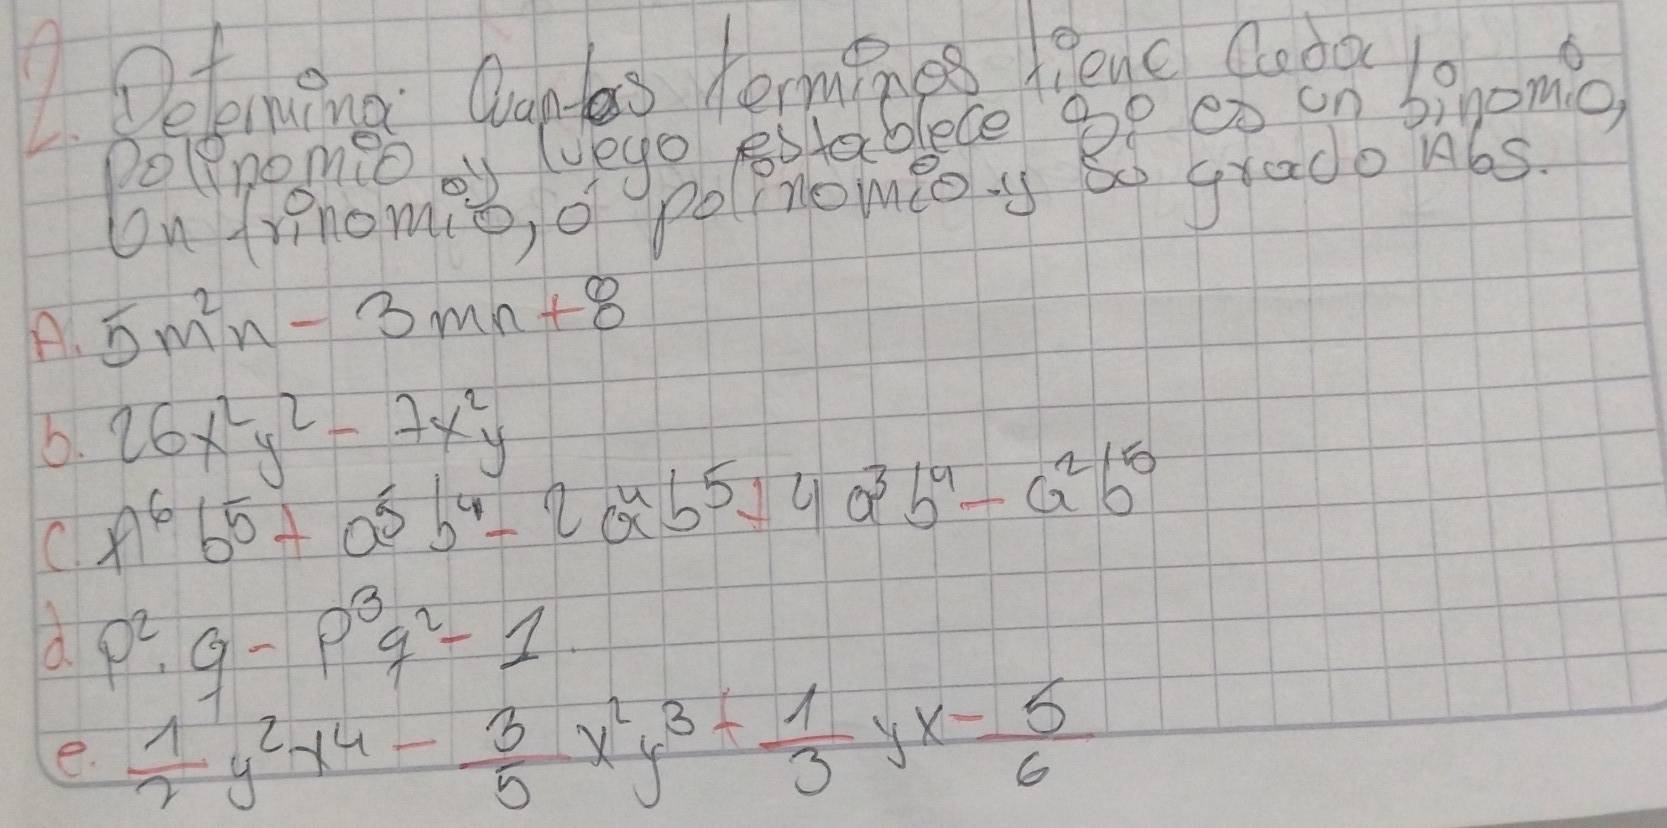 2. Determina Cuantos terminos tiene Cada
polinomio y luego establece si es un binomio, o
Un trinomio, o polinomio y su grado Abs.
A. 5m²n - 3mn + 8
b. 26x²y² - 7x²y
c. A⁶b⁵ + a⁵b⁴ - 2a⁴b⁵ + 4a³b⁴ - a²b⁵
d. p².q - p³q² - 1
e. 1/2 y²x⁴ - 3/5 x²y³ + 1/3 yx - 5/6